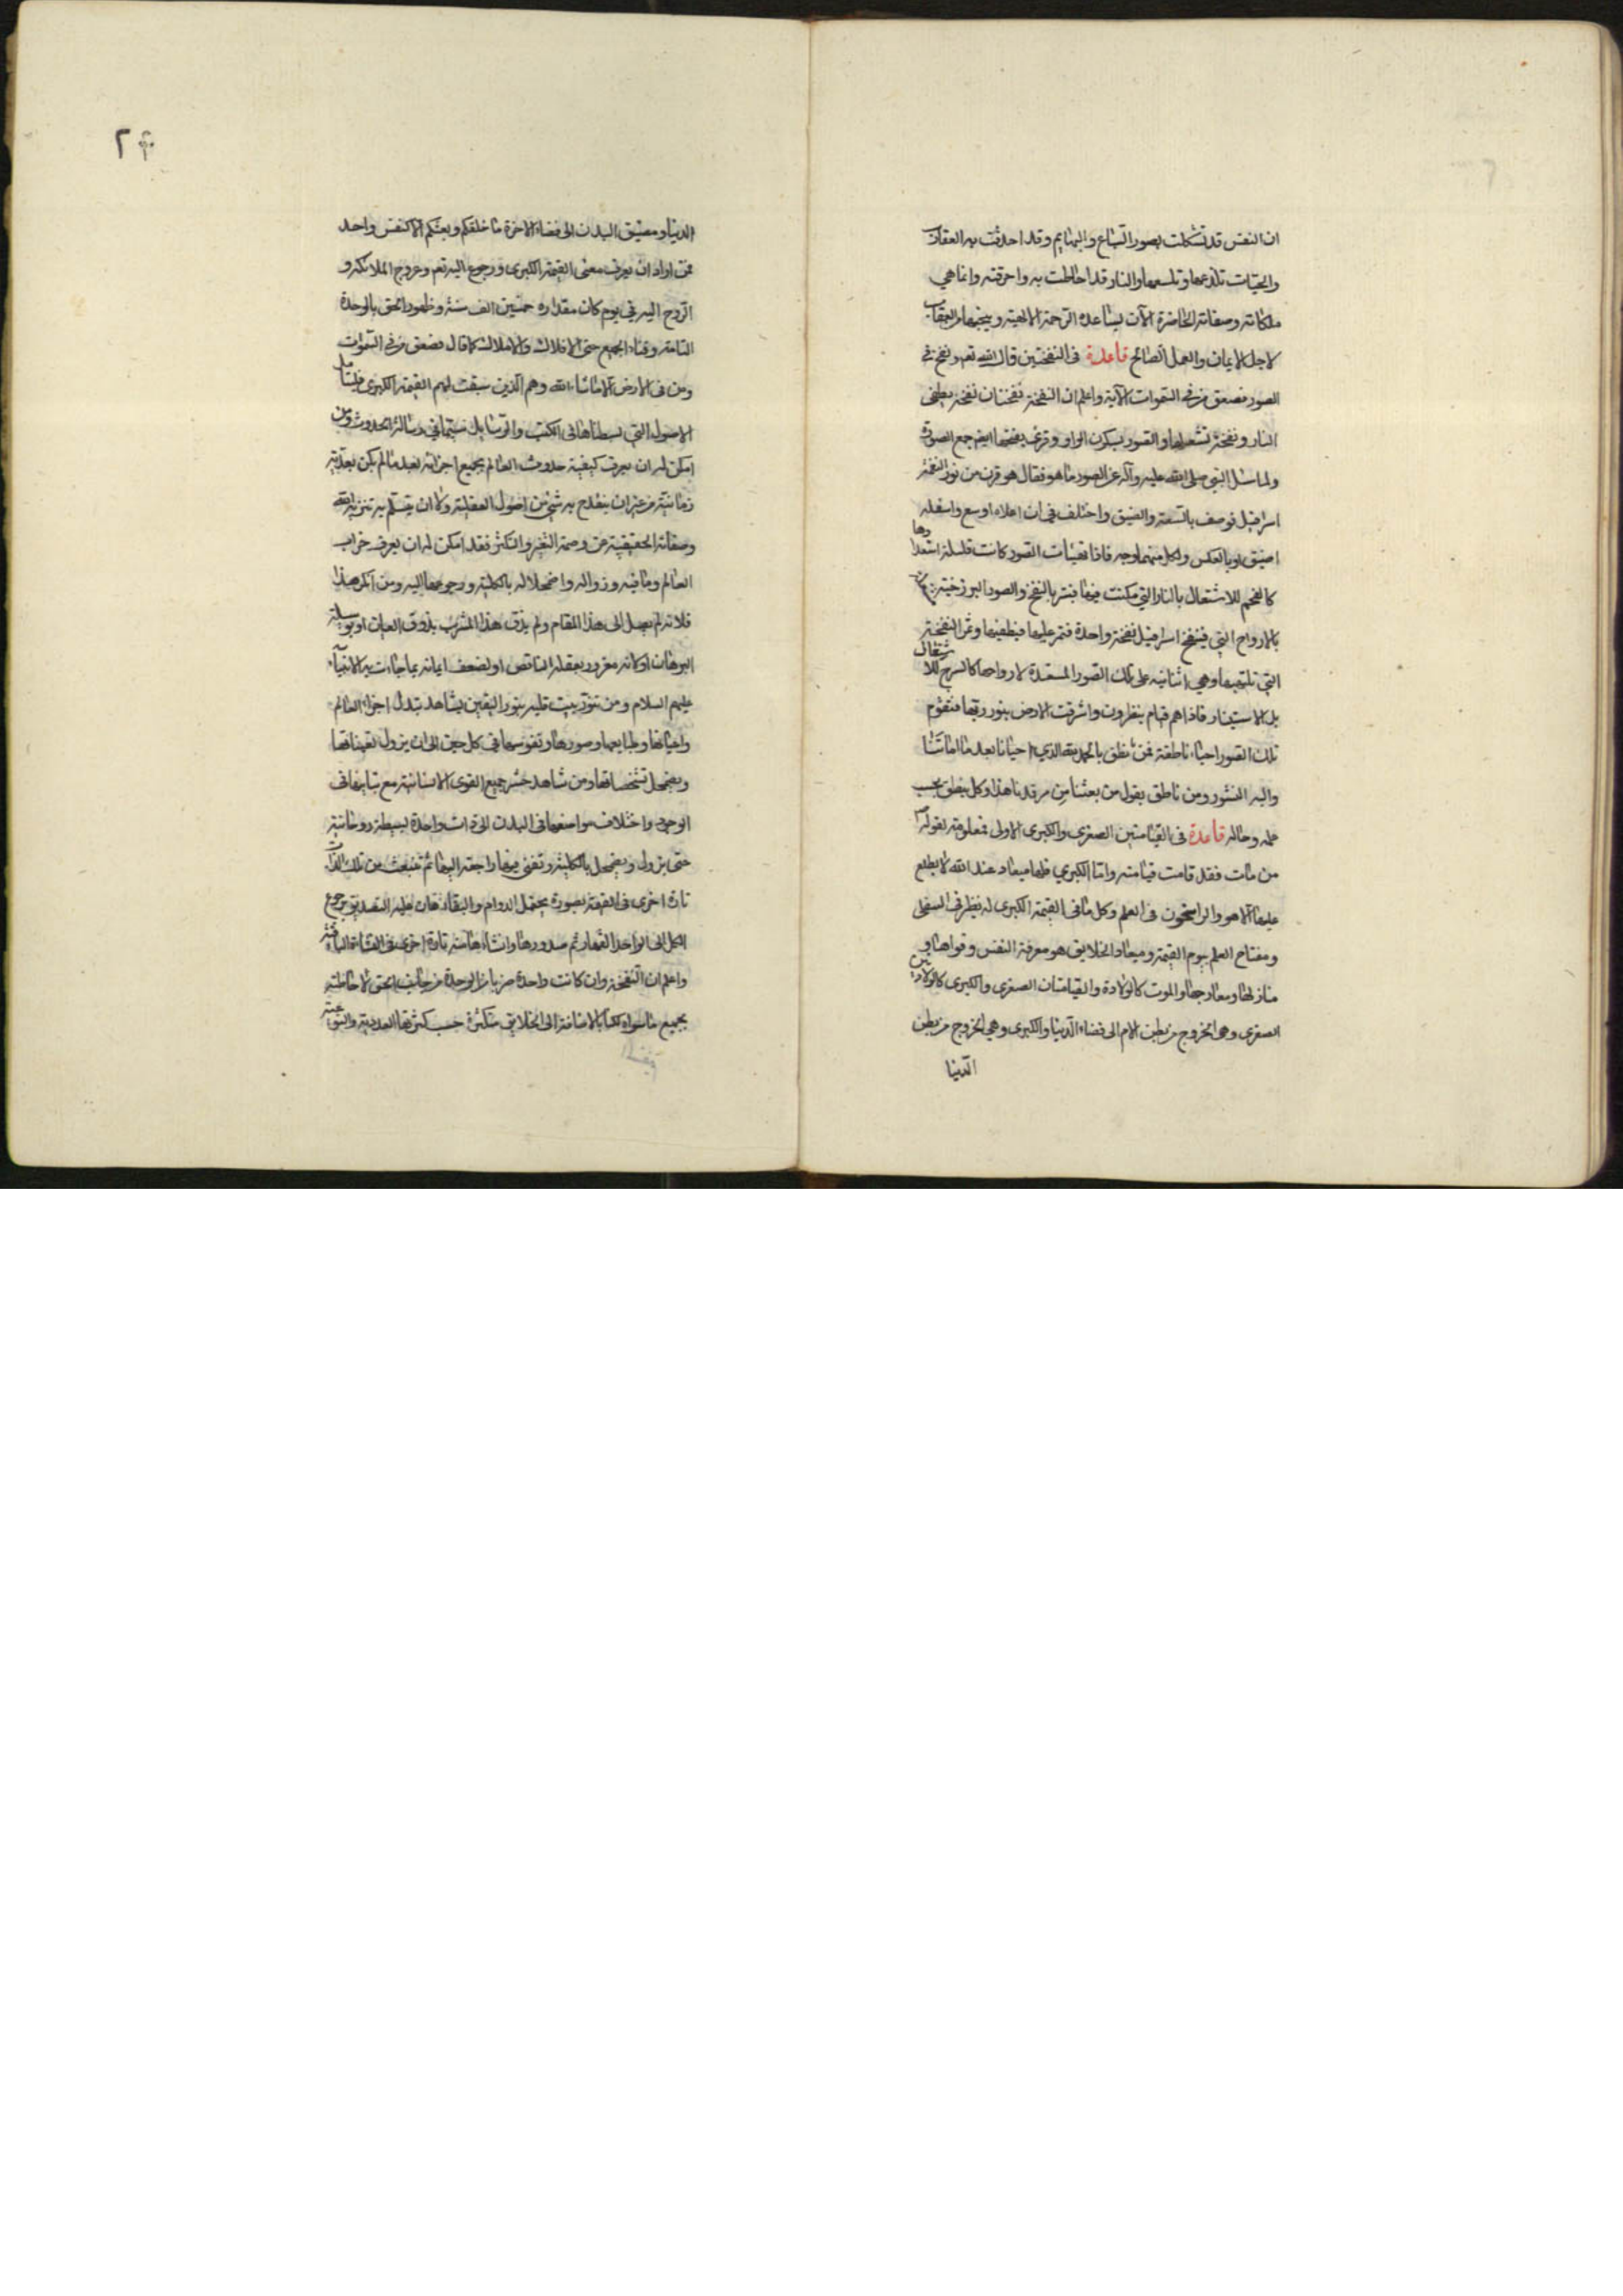 ان النفس قد تشكلت بصور السباع والبهايم وقد احدقت به العقارب
والحيات تلدغها وتلسعها والنار قد احاطت به واحرقته وانما هي
ملكاته وصفاته الحاضرة الآن يساعده الرحمة الالهية وينجيها من العقاب
لاجل الايمان والعمل الصالح قاعدة فى النفختين قال الله تعم ونفخ فى
الصور فصعق من فى السموات الآية واعلم ان النفخة نفختان نفخة يطفى
النار ونفخة تشعلها والصور بسكون الواو وقرئ بفتحها ايضا جمع الصورة
ولما سئل النبى صلى الله عليه وآله عن الصور ما هو فقال هو قرن من نور التقمه
اسرافيل فوصف بالسعة والضيق واختلف فى ان اعلاه اوسع واسفله
اضيق او بالعكس ولكل منهما وجه فاذا تهيئات الصور كانت فتيلة استعدادها
كالفحم للاشتعال بالنار التي مكنت فيها فتبرز بالنفخ والصور البرزخية
بالارواح التي فينفخ اسرافيل نفخة واحدة فتمر عليها فيطفيها وتمر النفخة
التي تليها وهي الثانية على تلك الصور المستعدة لارواحها كالسرج للاشتعال
بل الاستنار فاذا هم قيام ينظرون واشرقت الارض بنور ربها فتقوم
تلك الصور احياء ناطقة فمن نطق بالحمد لله الذي احيانا بعد ما اماتنا
واليه النشور ومن ناطق يقول من بعثنا من مرقدنا هذا وكل ينطق بحسب
علمه وحاله قاعدة فى القيامتين الصغرى والكبرى الاولى فمعلومة بقوله ص
من مات فقد قامت قيامته واما الكبرى فلها ميعاد عند الله لا يطلع
عليها الا هو والراسخون فى العلم وكل ما فى القيمة الكبرى له نظير فى الصغرى
ومفتاح العلم بيوم القيمة ومعاد الخلايق هو معرفة النفس وقواها و
منازلها ومعارجها والموت كالولادة والقيامتان الصغرى والكبرى كالولادتين
الصغرى وهى الخروج من بطن الام الى فضاء الدنيا والكبرى وهي الخروج من بطن
الدنيا
٢٤
الدنيا ومضيق البدن الى فضاء الاخرة ما خلقكم وبعثكم الا كنفس واحد
فمن اراد ان يعرف معنى القيمة الكبرى ورجوع اليه تعم وعروج الملائكة و
الروح اليه في يوم كان مقداره خمسين الف سنة وظهور الحق بالوحدة
التامة وفناء الجميع حتى الافلاك والاملاك كما قال فصعق من فى السموات
ومن فى الارض الا ما شاء الله وهم الذين سبقت لهم القيمة الكبرى فليتأمل
الاصول التي بسطناها فى الكتب والرسايل سيما في رسالة الحدوث ومن
امكن له ان يعرف كيفية حدوث العالم بجميع اجزائه بعد ما لم يكن بعدية
زمانية من غير ان ينقدح به شئ من اصول العقلية ولا ان ينثلم به تنزيه الله
وصفاته الحقيقية عن وصمة التغير والتكثر فقد امكن له ان يعرف خراب
العالم وما فيه وزواله واضمحلاله بالكلية ورجوعها اليه ومن انكر هذا
فلانه لم يصل الى هذا المقام ولم يذق هذا المشرب بذوق العيان او بوسيلة
البرهان او كانه مغرور بعقله الناقص او لضعف ايمانه بما جاءت به الانبيآء
عليهم السلام ومن تنور بيت قلبه بنور اليقين يشاهد تبدل اجزاء العالم
واعيانها وطبايعها وصورها ونفوسها في كل حين الى ان يزول تعيناتها
ويضمحل تشخصاتها ومن شاهد حشر جميع القوى الانسانية مع تباينها فى
الوجود واختلاف مواضعها فى البدن الى ذات واحدة بسيطة روحانية
حتى يزول ويضمحل بالكلية وتفنى فيها راجعة اليها ثم تنبعث من تلك الذات
تارة اخرى فى القيمة بصورة يحتمل الدوام والبقاء هان عليه التصديق برجوع
الكل الى الواحد القهار ثم صدورها وانشاءها منه تارة اخرى فى النشاة الباقية
واعلم ان النفخة وان كانت واحدة من بارز الوحدة من جانب الحق لاحاطته
بجميع ما سواه لكنها بالاضافة الى الخلايق متكثرة حسب كثرتها العددية والنوعية